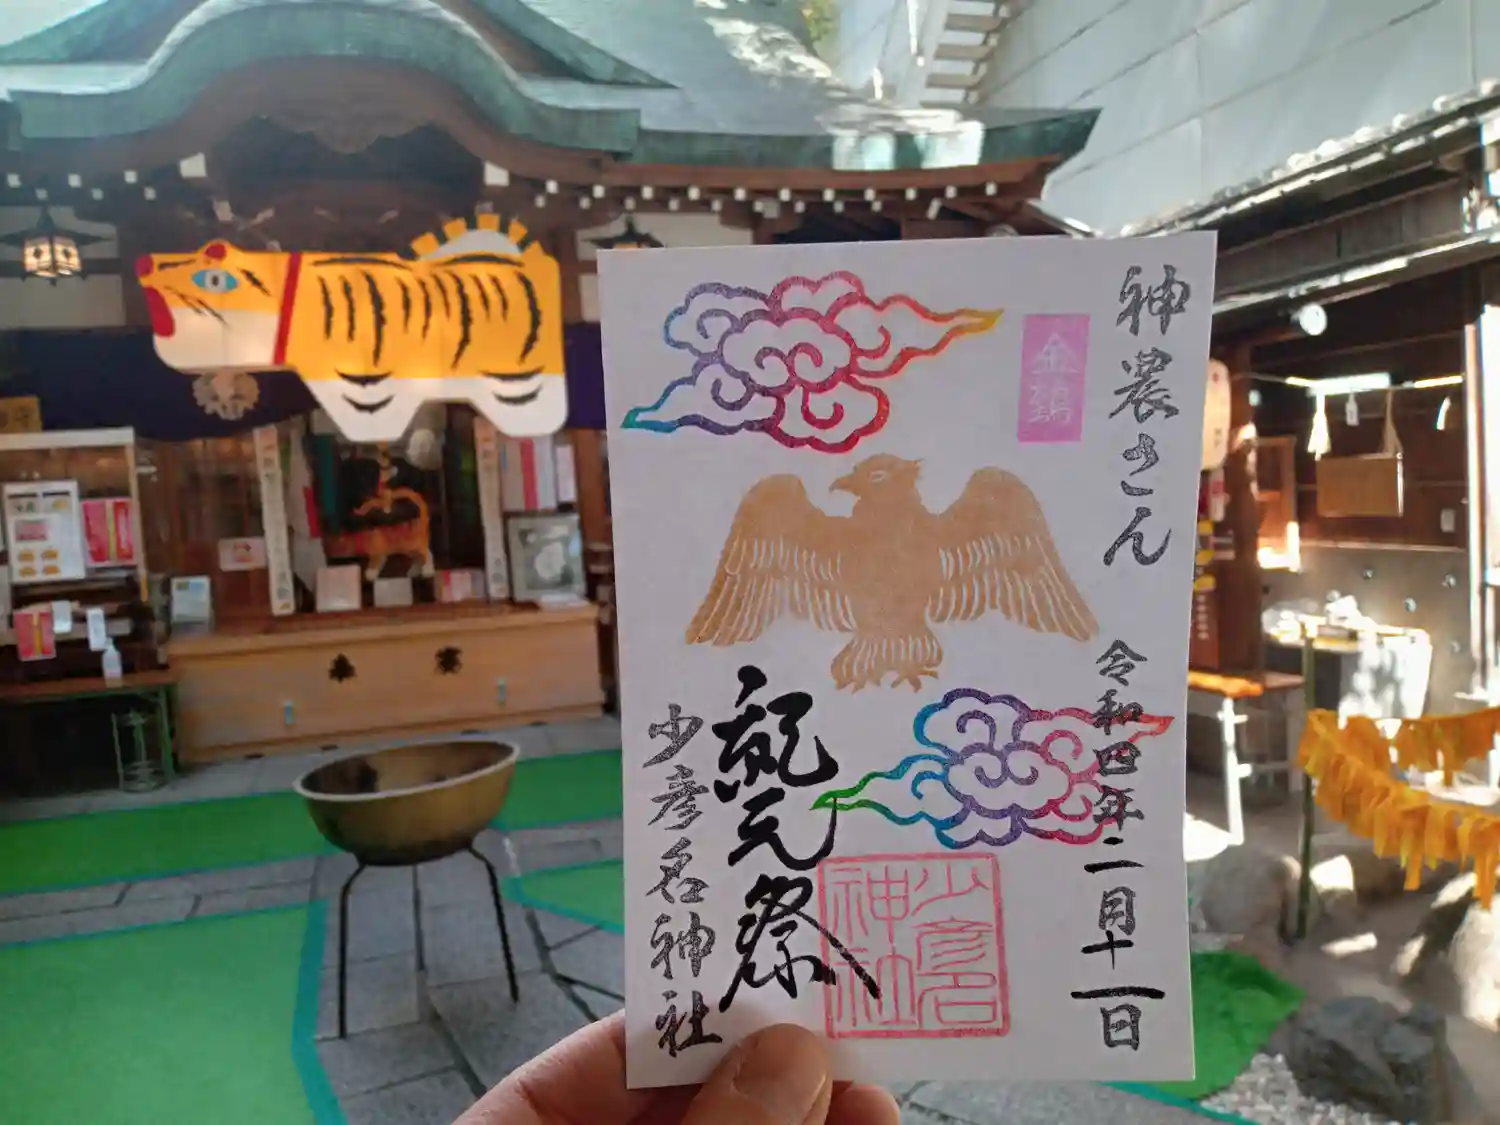 神農さん
令和四年二月十一日
金鵄
紀元祭
少彦名神社
少彦名
神社